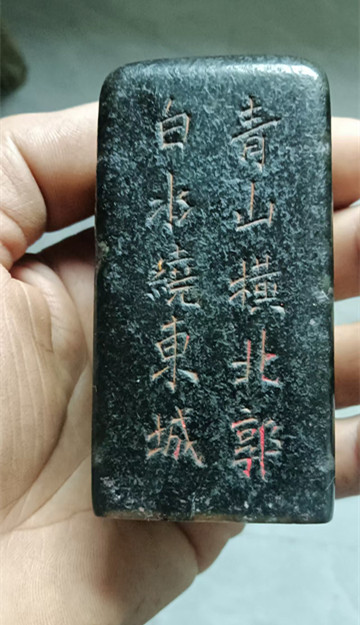 青山橫北郭
白水繞東城